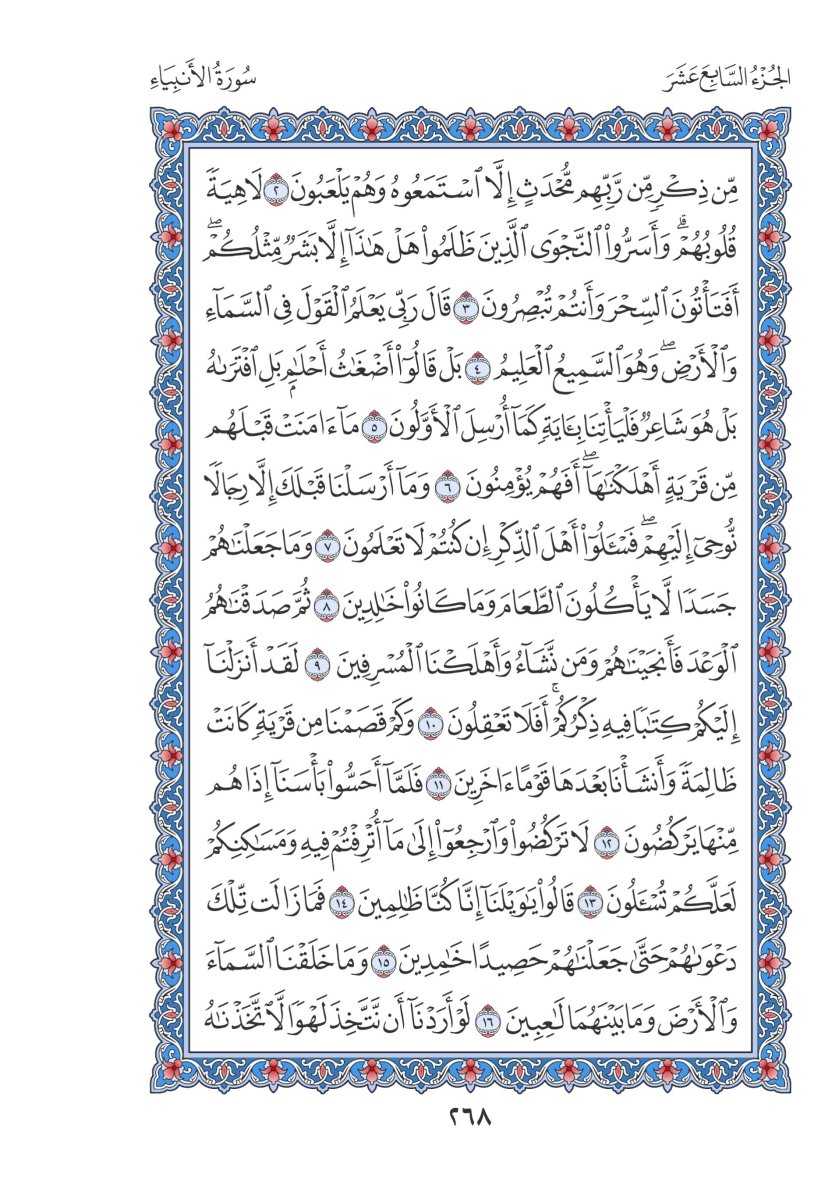 الجُزْءُ السَّابِعَ عَشَرَ
سُورَةُ الأَنبِيَاءِ
مِّن ذِكْرٍ مِّن رَّبِّهِم مُّحْدَثٍ إِلَّا ٱسْتَمَعُوهُ وَهُمْ يَلْعَبُونَ ٢ لَاهِيَةً
قُلُوبُهُمْ ۗ وَأَسَرُّوا۟ ٱلنَّجْوَى ٱلَّذِينَ ظَلَمُوا۟ هَلْ هَـٰذَآ إِلَّا بَشَرٌ مِّثْلُكُمْ ۖ
أَفَتَأْتُونَ ٱلسِّحْرَ وَأَنتُمْ تُبْصِرُونَ ٣ قَالَ رَبِّى يَعْلَمُ ٱلْقَوْلَ فِى ٱلسَّمَآءِ
وَٱلْأَرْضِ ۖ وَهُوَ ٱلسَّمِيعُ ٱلْعَلِيمُ ٤ بَلْ قَالُوٓا۟ أَضْغَـٰثُ أَحْلَـٰمٍۭ بَلِ ٱفْتَرَىٰهُ
بَلْ هُوَ شَاعِرٌ فَلْيَأْتِنَا بِـَٔايَةٍ كَمَآ أُرْسِلَ ٱلْأَوَّلُونَ ٥ مَآ ءَامَنَتْ قَبْلَهُم
مِّن قَرْيَةٍ أَهْلَكْنَـٰهَآ ۖ أَفَهُمْ يُؤْمِنُونَ ٦ وَمَآ أَرْسَلْنَا قَبْلَكَ إِلَّا رِجَالًا
نُّوحِىٓ إِلَيْهِمْ ۖ فَسْـَٔلُوٓا۟ أَهْلَ ٱلذِّكْرِ إِن كُنتُمْ لَا تَعْلَمُونَ ٧ وَمَا جَعَلْنَـٰهُمْ
جَسَدًا لَّا يَأْكُلُونَ ٱلطَّعَامَ وَمَا كَانُوا۟ خَـٰلِدِينَ ٨ ثُمَّ صَدَقْنَـٰهُمُ
ٱلْوَعْدَ فَأَنجَيْنَـٰهُمْ وَمَن نَّشَآءُ وَأَهْلَكْنَا ٱلْمُسْرِفِينَ ٩ لَقَدْ أَنزَلْنَآ
إِلَيْكُمْ كِتَـٰبًا فِيهِ ذِكْرُكُمْ ۚ أَفَلَا تَعْقِلُونَ ١٠ وَكَمْ قَصَمْنَا مِن قَرْيَةٍ كَانَتْ
ظَالِمَةً وَأَنشَأْنَا بَعْدَهَا قَوْمًا ءَاخَرِينَ ١١ فَلَمَّآ أَحَسُّوا۟ بَأْسَنَآ إِذَا هُم
مِّنْهَا يَرْكُضُونَ ١٢ لَا تَرْكُضُوا۟ وَٱرْجِعُوٓا۟ إِلَىٰ مَآ أُتْرِفْتُمْ فِيهِ وَمَسَـٰكِنِكُمْ
لَعَلَّكُمْ تُسْـَٔلُونَ ١٣ قَالُوا۟ يَـٰوَيْلَنَآ إِنَّا كُنَّا ظَـٰلِمِينَ ١٤ فَمَا زَالَت تِّلْكَ
دَعْوَىٰهُمْ حَتَّىٰ جَعَلْنَـٰهُمْ حَصِيدًا خَـٰمِدِينَ ١٥ وَمَا خَلَقْنَا ٱلسَّمَآءَ
وَٱلْأَرْضَ وَمَا بَيْنَهُمَا لَـٰعِبِينَ ١٦ لَوْ أَرَدْنَآ أَن نَّتَّخِذَ لَهْوًا لَّٱتَّخَذْنَـٰهُ
٢٦٨